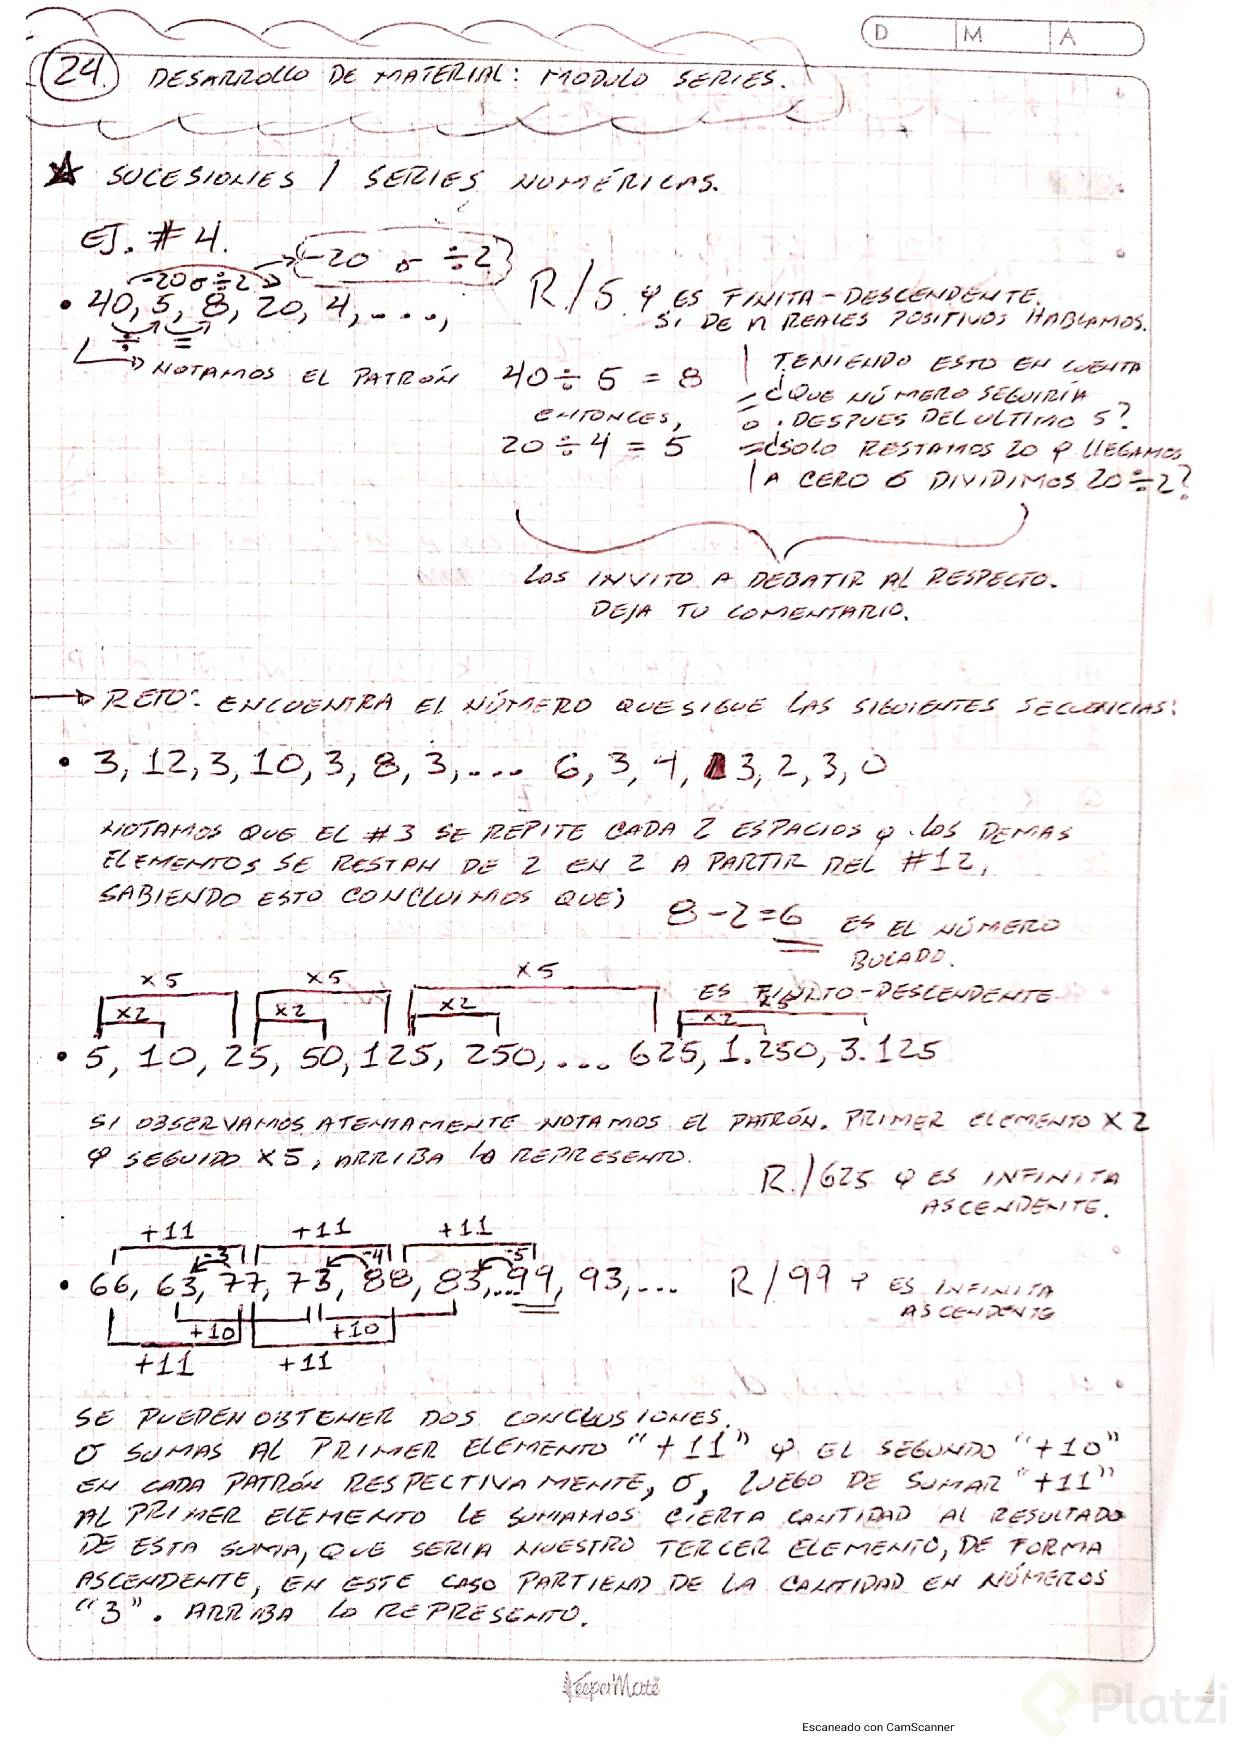 D M A
24. DESARROLLO DE MATERIAL: MODULO SERIES.
SUCESIONES / SERIES NUMÉRICAS.
EJ. #4.
-20 ó ÷2 → -20 ó ÷2
• 40, 5, 8, 20, 4, ---,
÷ =
R/5. Y ES FINITA-DESCENDENTE.
SI DE n REALES POSITIVOS HABLAMOS.
NOTAMOS EL PATRÓN
40 ÷ 5 = 8
ENTONCES,
20 ÷ 4 = 5
TENIENDO ESTO EN CUENTA
¿QUE NÚMERO SEGUIRÍA
DESPUES DEL ULTIMO 5?
¿SOLO RESTAMOS 20 Y LLEGAMOS
A CERO Ó DIVIDIMOS 20÷2?
LOS INVITO A DEBATIR AL RESPECTO.
DEJA TU COMENTARIO.
→ RETO: ENCUENTRA EL NÚMERO QUE SIGUE LAS SIGUIENTES SECUENCIAS:
• 3, 12, 3, 10, 3, 8, 3, ... 6, 3, 4, 3, 2, 3, 0
NOTAMOS QUE EL #3 SE REPITE CADA 2 ESPACIOS Y LOS DEMAS
ELEMENTOS SE RESTAN DE 2 EN 2 A PARTIR DEL #12,
SABIENDO ESTO CONCLUIMOS QUE;
8-2=6 ES EL NÚMERO
BUCADO.
ES FINITO-DESCENDENTE
x5 x5 x5 x5
x2 x2 x2 x2
• 5, 10, 25, 50, 125, 250, ... 625, 1.250, 3.125
SI OBSERVAMOS ATENTAMENTE NOTAMOS EL PATRÓN. PRIMER ELEMENTO X2
Y SEGUIDO X5, ARRIBA LO REPRESENTO.
R./625 Y ES INFINITA
ASCENDENTE.
+11 +11 +11
-3 -4 -5
• 66, 63, 77, 73, 88, 83, ... 99, 93, ...
R/99 Y ES INFINITA
ASCENDENTE
+10 +10
+11 +11
SE PUEDEN OBTENER DOS CONCLUSIONES.
Ó SUMAS AL PRIMER ELEMENTO "+11" Y EL SEGUNDO "+10"
EN CADA PATRÓN RESPECTIVAMENTE, Ó, LUEGO DE SUMAR "+11"
AL PRIMER ELEMENTO LE SUMAMOS CIERTA CANTIDAD AL RESULTADO
DE ESTA SUMA, QUE SERIA NUESTRO TERCER ELEMENTO, DE FORMA
ASCENDENTE, EN ESTE CASO PARTIEND DE LA CANTIDAD EN NÚMEROS
"3". ARRIBA LO REPRESENTO.
KeeperMate
Platzi
Escaneado con CamScanner